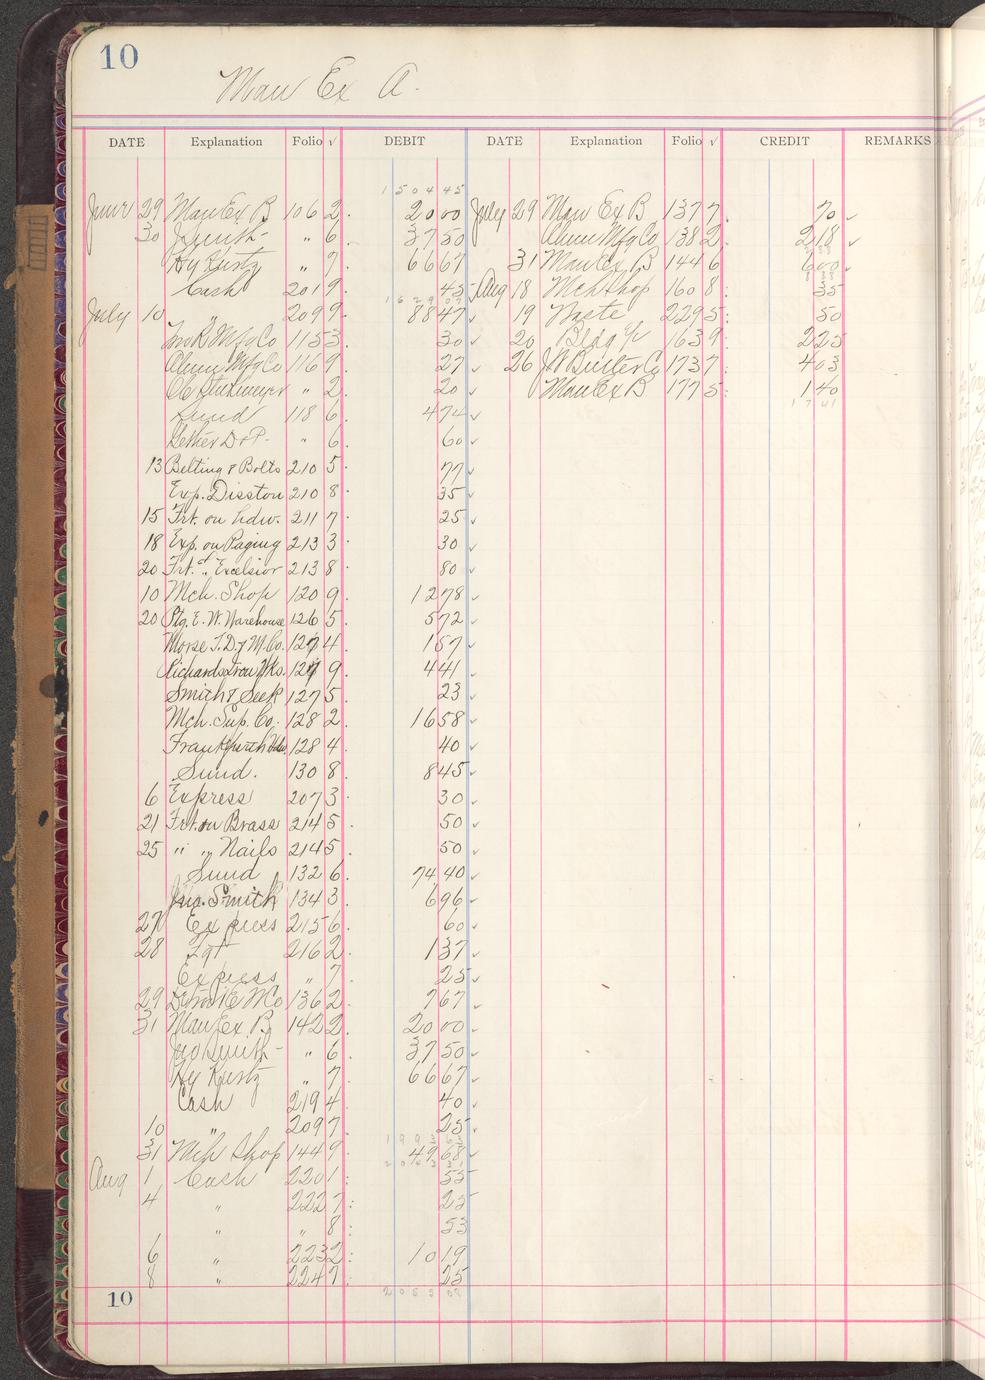 10
Man Ex A.
DATE Explanation Folio √ DEBIT DATE Explanation Folio √ CREDIT REMARKS
1504 45
June 29 Man Ex B 106 2 20 00 July 29 Man Ex B 137 7 70
30 J Smith " 6 37 50 Alum Mfg Co 138 2 2 18
Hy Kurtz " 7 66 67 31 Man Ex B 144 6 6 00
Cash 201 9 45 Aug 18 Mch Shop 160 8 35
1629 07
July 10 " 209 9 88 47 19 Waste 229 5 50
Mfg Co 115 3 30 20 Bldg a/c 163 9 2 25
Alum Mfg Co 116 9 27 26 J W Butler Co 173 7 4 03
" 2 20 Man Ex B 177 5 1 40
17 41
Sund 118 6 4 74
" 6 60
13 Belting & Bolts 210 5 77
Exp. Disston 210 8 35
15 Frt. on hdw. 211 7 25
18 Exp. on Paging 213 3 30
20 Frt. " Excelsior 213 8 80
10 Mch. Shop 120 9 12 78
20 Ptg. E. W. Warehouse 126 5 5 72
Morse T. D. & M. Co. 127 4 1 57
Richards Iron Wks. 127 9 4 41
Smith & Seek 127 5 23
Mch. Sup. Co. 128 2 16 58
Frankfurth Hdw. 128 4 40
Sund. 130 8 8 45
6 Express 207 3 30
21 Frt. on Brass 214 5 50
25 " " Nails 214 5 50
Sund 132 6 74 40
Jno. Smith 134 3 6 96
27 Express 215 6 60
28 Frt 216 2 1 37
Express " 7 25
29 136 2 7 67
31 Man Ex B 142 2 20 00
Jno Smith " 6 37 50
Hy Kurtz " 7 66 67
Cash 219 4 40
10 " 209 7 25
31 Mch Shop 144 9 49 68
Aug 1 Cash 220 1 55
4 " 222 7 25
" " 8 53
6 " 223 2 10 19
8 " 224 7 25
10